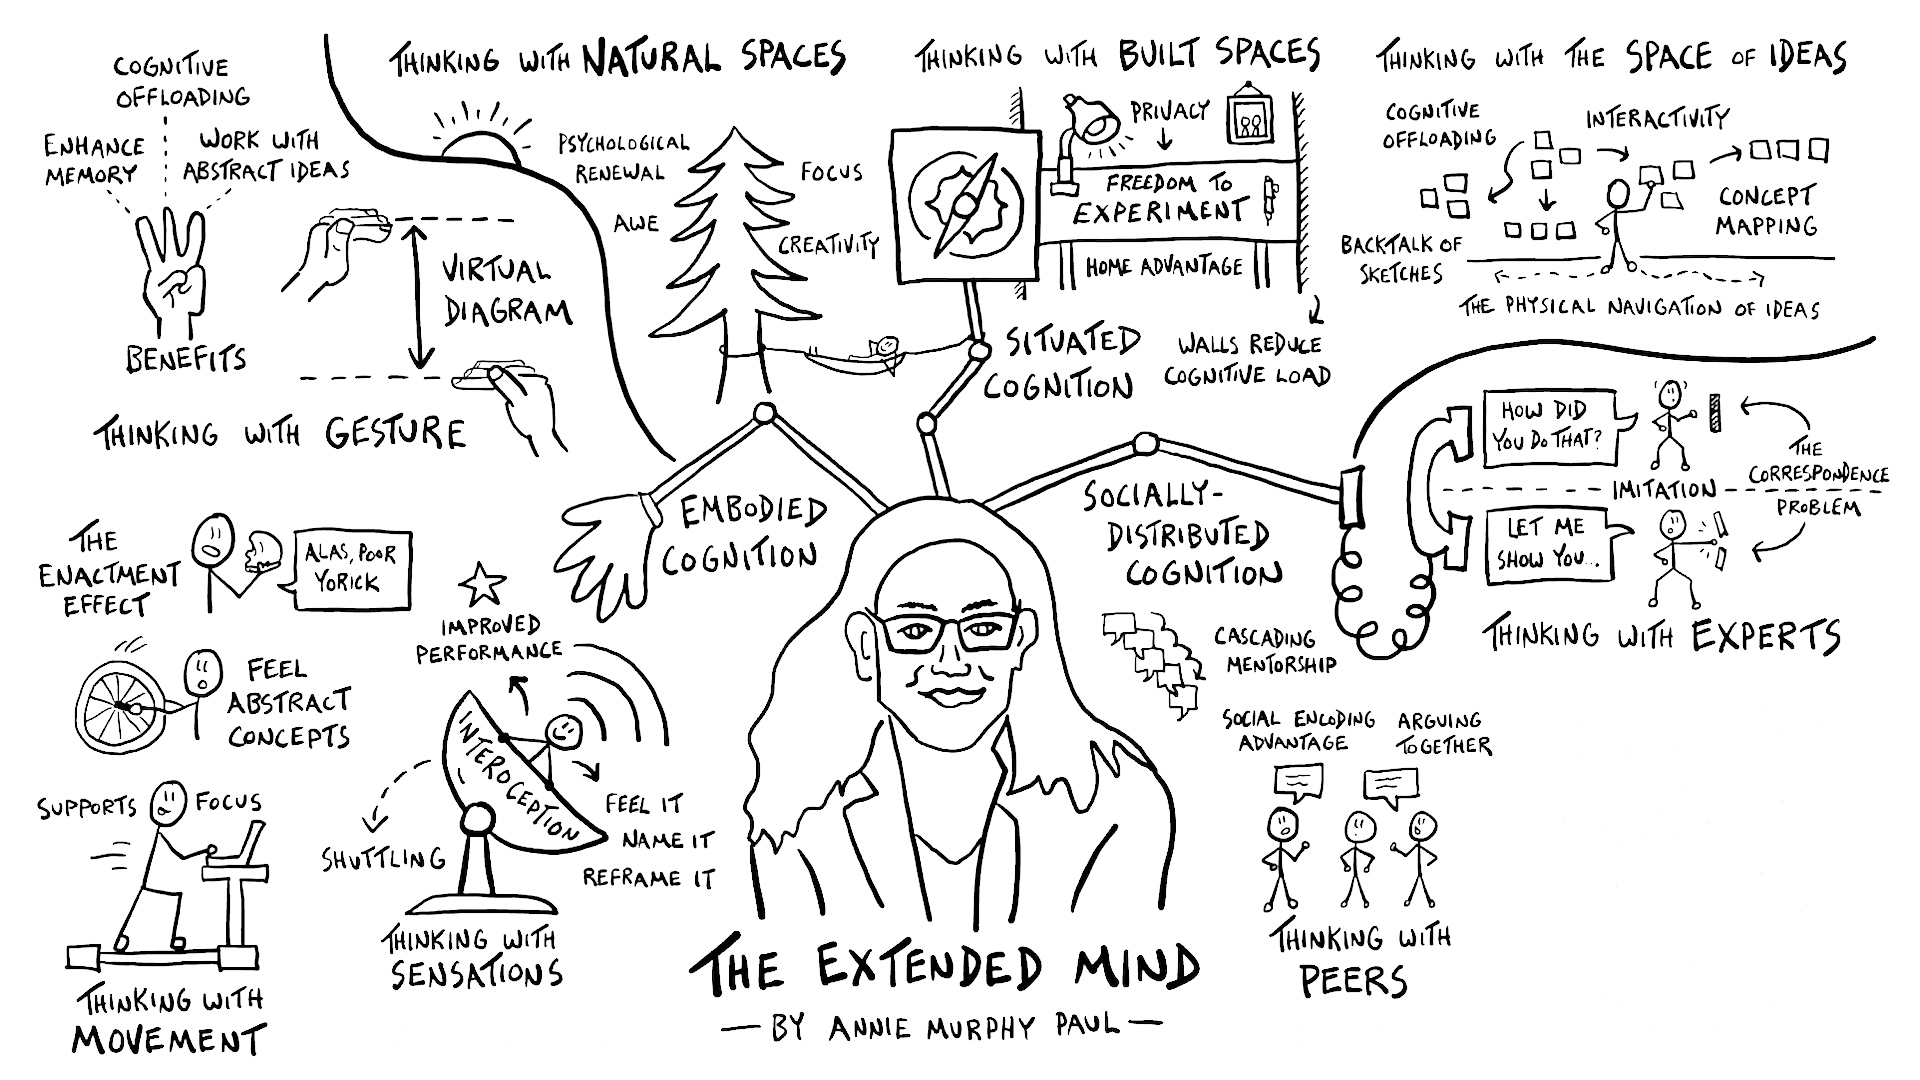 COGNITIVE
OFFLOADING
ENHANCE
MEMORY
WORK WITH
ABSTRACT IDEAS
BENEFITS
VIRTUAL
DIAGRAM
THINKING WITH GESTURE
THINKING WITH NATURAL SPACES
PSYCHOLOGICAL
RENEWAL
FOCUS
AWE
CREATIVITY
THINKING WITH BUILT SPACES
PRIVACY
FREEDOM TO
EXPERIMENT
HOME ADVANTAGE
SITUATED
COGNITION
WALLS REDUCE
COGNITIVE LOAD
THINKING WITH THE SPACE OF IDEAS
COGNITIVE
OFFLOADING
INTERACTIVITY
CONCEPT
MAPPING
BACKTALK OF
SKETCHES
THE PHYSICAL NAVIGATION OF IDEAS
EMBODIED
COGNITION
SOCIALLY-
DISTRIBUTED
COGNITION
HOW DID
YOU DO THAT?
THE
CORRESPONDENCE
PROBLEM
IMITATION
LET ME
SHOW YOU...
THINKING WITH EXPERTS
THE
ENACTMENT
EFFECT
ALAS, POOR
YORICK
FEEL
ABSTRACT
CONCEPTS
SUPPORTS FOCUS
THINKING WITH
MOVEMENT
IMPROVED
PERFORMANCE
INTEROCEPTION
SHUTTLING
FEEL IT
NAME IT
REFRAME IT
THINKING WITH
SENSATIONS
CASCADING
MENTORSHIP
SOCIAL ENCODING
ADVANTAGE
ARGUING
TOGETHER
THINKING WITH
PEERS
THE EXTENDED MIND
— BY ANNIE MURPHY PAUL —